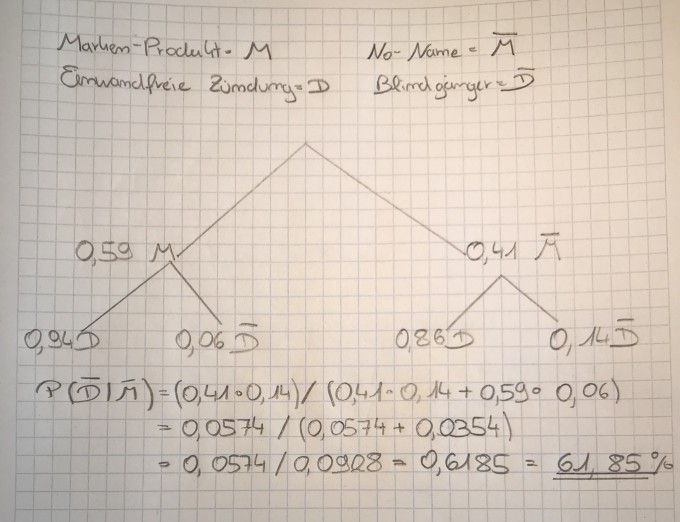 Marken-Produkt = M No-Name = M̅
Einwandfreie Zündung = D Blindgänger = D̅
0,59 M 0,41 M̅
0,94 D 0,06 D̅ 0,86 D 0,14 D̅
P(D̅|M̅) = (0,41·0,14)/(0,41·0,14 + 0,59·0,06)
= 0,0574/(0,0574 + 0,0354)
= 0,0574/0,0928 = 0,6185 = 61,85%